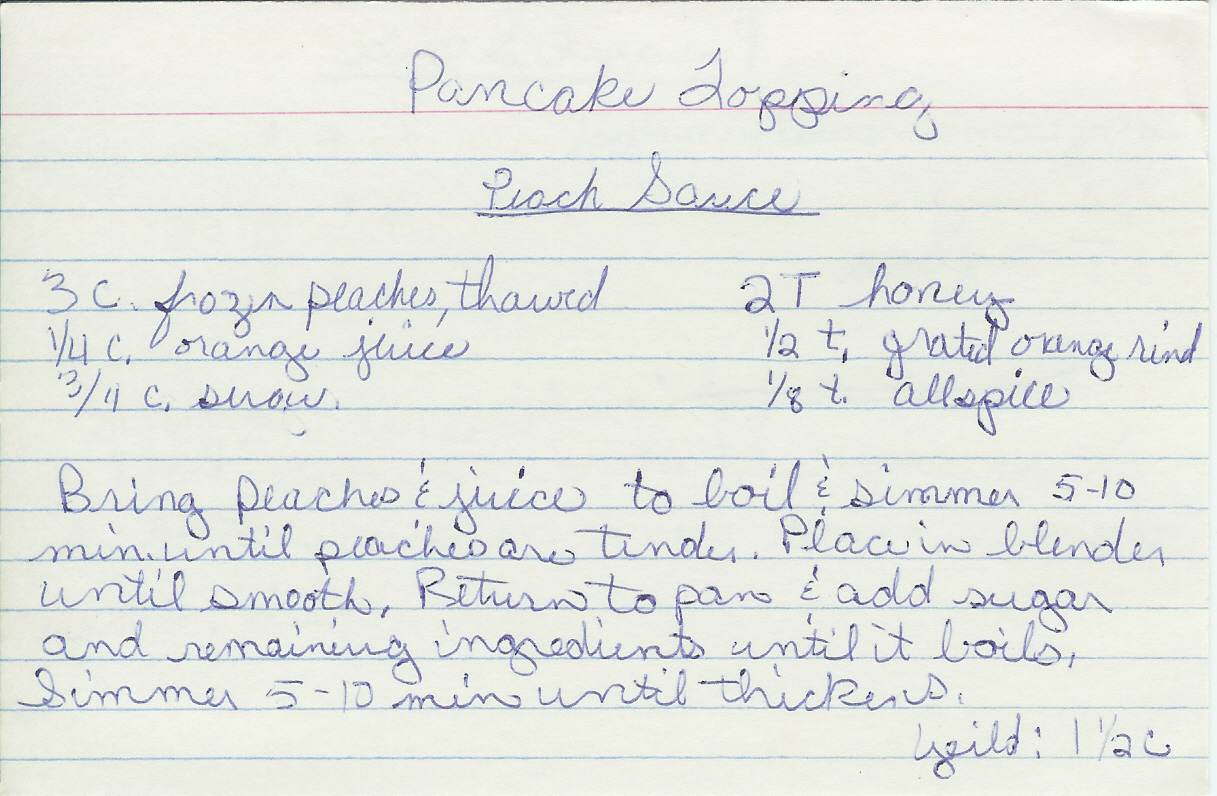 Pancake Topping
Peach Sauce
3 c. frozen peaches, thawed 2 T honey
1/4 c. orange juice 1/2 t. grated orange rind
3/4 c. sugar. 1/8 t. allspice
Bring peaches & juice to boil & simmer 5-10
min. until peaches are tender. Place in blender
until smooth. Return to pan & add sugar
and remaining ingredients until it boils.
Simmer 5-10 min until thickens.
Yield: 1 1/2 c